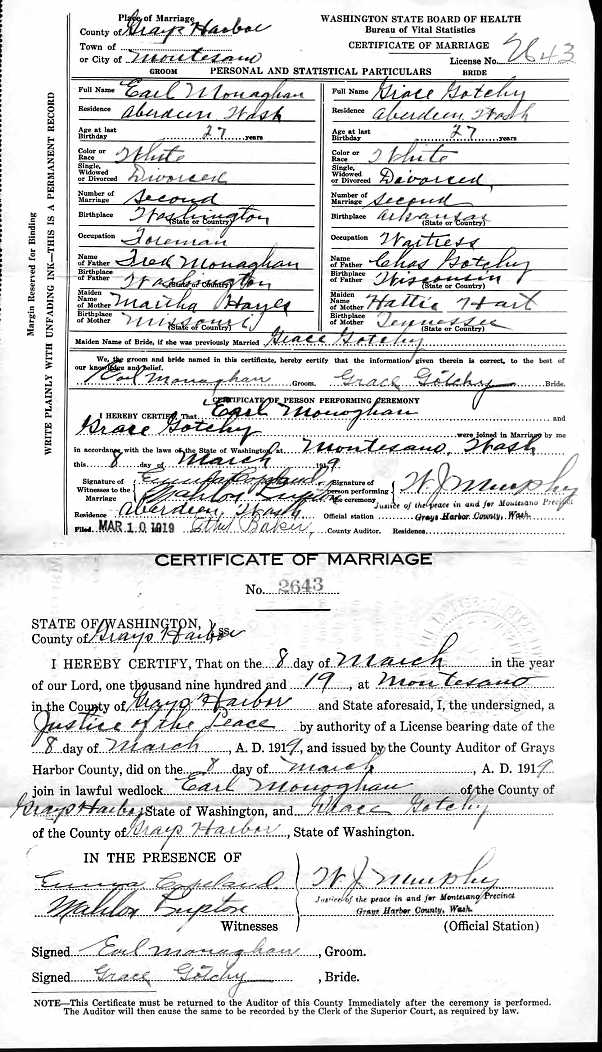 Place of Marriage
County of Grays Harbor
Town of
or City of Montesano
WASHINGTON STATE BOARD OF HEALTH
Bureau of Vital Statistics
CERTIFICATE OF MARRIAGE
License No. 2643
GROOM PERSONAL AND STATISTICAL PARTICULARS BRIDE
Margin Reserved for Binding
WRITE PLAINLY WITH UNFADING INK—THIS IS A PERMANENT RECORD
Full Name Earl Monaghan
Residence Aberdeen Wash
Age at last Birthday 27 years
Color or Race White
Single, Widowed or Divorced Divorced
Number of Marriage Second
Birthplace Washington
(State or Country)
Occupation Foreman
Name of Father Fred Monaghan
Birthplace of Father Washington
(State or Country)
Maiden Name of Mother Martha Hayes
Birthplace of Mother Missouri
(State or Country)
Full Name Grace Gotchy
Residence Aberdeen, Wash
Age at last Birthday 27 years
Color or Race White
Single, Widowed or Divorced Divorced
Number of Marriage Second
Birthplace Arkansas
(State or Country)
Occupation Waitress
Name of Father Chas Gotchy
Birthplace of Father Wisconsin
(State or Country)
Maiden Name of Mother Hattie Hart
Birthplace of Mother Tennessee
(State or Country)
Maiden Name of Bride, if she was previously Married Grace Gotchy
We, the groom and bride named in this certificate, hereby certify that the information given therein is correct, to the best of
our knowledge and belief.
Earl Monaghan Groom. Grace Gotchy Bride.
CERTIFICATE OF PERSON PERFORMING CEREMONY
I HEREBY CERTIFY, That Earl Monoghan and
Grace Gotchy were joined in Marriage by me
in accordance with the laws of the State of Washington, at Montesano, Wash
this 8 day of March 1919
Signature of Witnesses to the Marriage Emma Copeland
Mahlon Lupton
Residence Aberdeen, Wash
Signature of person performing the ceremony W J Murphy
Justice of the peace in and for Montesano Precinct
Official station Grays Harbor County, Wash.
Filed MAR 10 1919 Baker, County Auditor. Residence
CERTIFICATE OF MARRIAGE
No. 2643
STATE OF WASHINGTON,
County of Grays Harbor ss
I HEREBY CERTIFY, That on the 8 day of March in the year
of our Lord, one thousand nine hundred and 19, at Montesano
in the County of Grays Harbor and State aforesaid, I, the undersigned, a
Justice of the Peace by authority of a License bearing date of the
8 day of March, A. D. 1919, and issued by the County Auditor of Grays
Harbor County, did on the 8 day of March, A. D. 1919
join in lawful wedlock Earl Monoghan of the County of
Grays Harbor State of Washington, and Grace Gotchy
of the County of Grays Harbor, State of Washington.
IN THE PRESENCE OF
Emma Copeland
Mahlon Lupton
Witnesses
W J Murphy
Justice of the peace in and for Montesano Precinct
Grays Harbor County, Wash.
(Official Station)
Signed Earl Monaghan, Groom.
Signed Grace Gotchy, Bride.
NOTE—This Certificate must be returned to the Auditor of this County Immediately after the ceremony is performed.
The Auditor will then cause the same to be recorded by the Clerk of the Superior Court, as required by law.